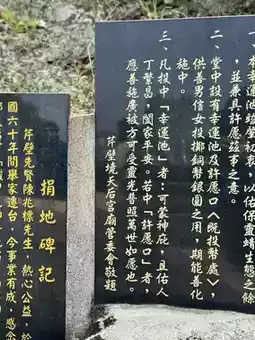 一、本幸運池竣舉初衷，以佑保靈蜻生態之餘
，並兼具許愿玆事之意。
二、堂中設有幸運池及許愿口（既投幣處），
供善男信女投擲銅幣銀圓之用，期能善化
施中。
三、凡投中「幸運池」者：可蒙神庇，且佑人
丁繁昌，闔家平安。若中「許愿口」者，
應善施廣被方可受靈光普照萬世如愿也。
芹壁境天后宮廟管委會敬題
捐地碑記
芹壁先賢陳兆標先生，熱心公益，於
國六十年間舉家遷台，今事業有成，感念